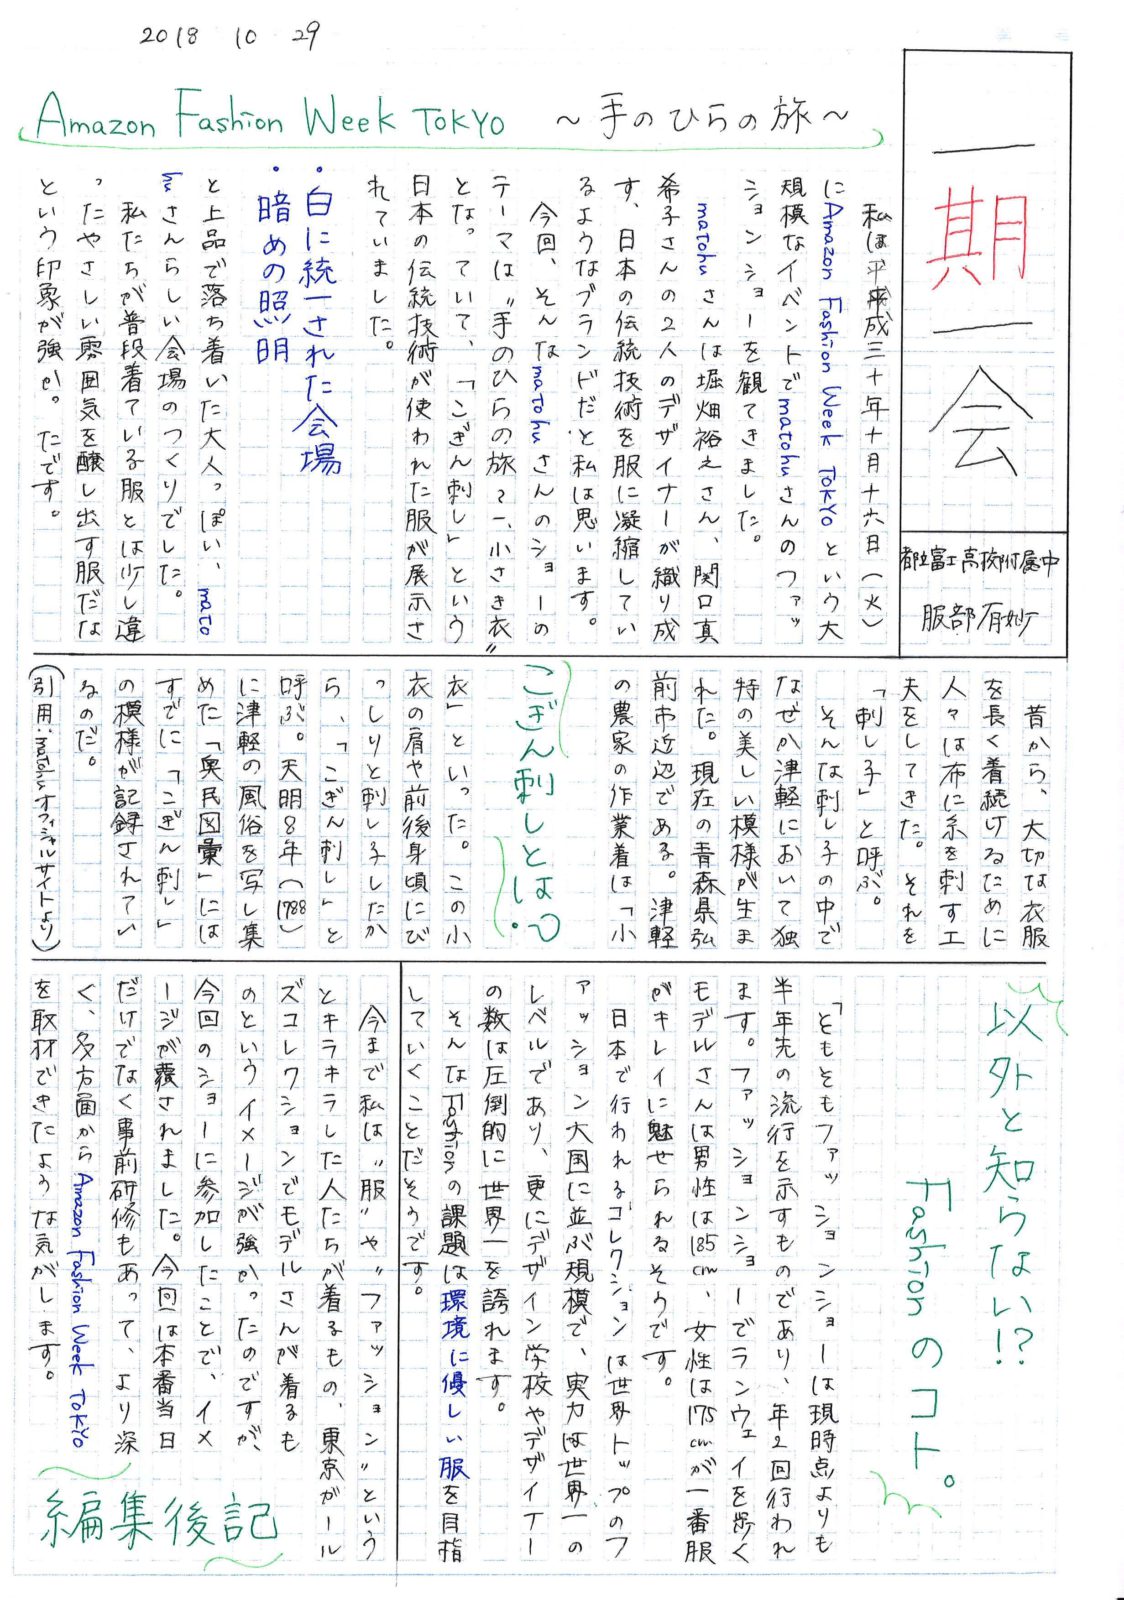 2018 10 29
一期一会
都立富士高校附属中
服部有妙
Amazon Fashion Week TOKYO ～手のひらの旅～
私は平成三十年十月十六日(火)
にAmazon Fashion Week TOKYOという大
規模なイベントでmatohuさんのファッ
ションショーを観てきました。
matohuさんは堀畑裕之さん、関口真
希子さんの2人のデザイナーが織り成
す、日本の伝統技術を服に凝縮してい
るようなブランドだと私は思います。
今回、そんなmatohuさんのショーの
テーマは〝手のひらの旅2-小さき衣〟
となっていて、「こぎん刺し」という
日本の伝統技術が使われた服が展示さ
れていました。
・白に統一された会場
・暗めの照明
と上品で落ち着いた大人っぽい、mato
huさんらしい会場のつくりでした。
私たちが普段着ている服とは少し違
ったやさしい雰囲気を醸し出す服だな
という印象が強かったです。
昔から、大切な衣服
を長く着続けるために
人々は布に糸を刺す工
夫をしてきた。それを
「刺し子」と呼ぶ。
そんな刺し子の中で
なぜか津軽において独
特の美しい模様が生ま
れた。現在の青森県弘
前市近辺である。津軽
の農家の作業着は「小
こぎん刺しとは?
衣」といった。この小
衣の肩や前後身頃にび
っしりと刺し子したか
ら、「こぎん刺し」と
呼ぶ。天明8年(1788)
に津軽の風俗を写し集
めた「奥民図彙」には
すでに「こぎん刺し」
の模様が記録されてい
るのだ。
(引用:matohuオフィシャルサイトより)
以外と知らない!?
Fashionのコト。
「ともともファッションショーは現時点よりも
半年先の流行を示すものであり、年2回行われ
ます。ファッションショーでランウェイを歩く
モデルさんは男性は185cm、女性は175cmが一番服
がキレイに魅せられるそうです。
日本で行われるコレクションは世界トップのフ
ァッション大国に並ぶ規模で、実力は世界一の
レベルであり、更にデザイン学校やデザイナー
の数は圧倒的に世界一を誇れます。
そんなFashionの課題は環境に優しい服を目指
していくことだそうです。
今まで私は〝服〟や〝ファッション〟という
とキラキラした人たちが着るもの、東京ガール
ズコレクションでモデルさんが着るも
のというイメージが強かったのですが、
今回のショーに参加したことで、イメ
ージが覆されました。今回は本番当日
だけでなく事前研修もあって、より深
く、多方面からAmazon Fashion Week TOKYO
を取材できたような気がします。
編集後記